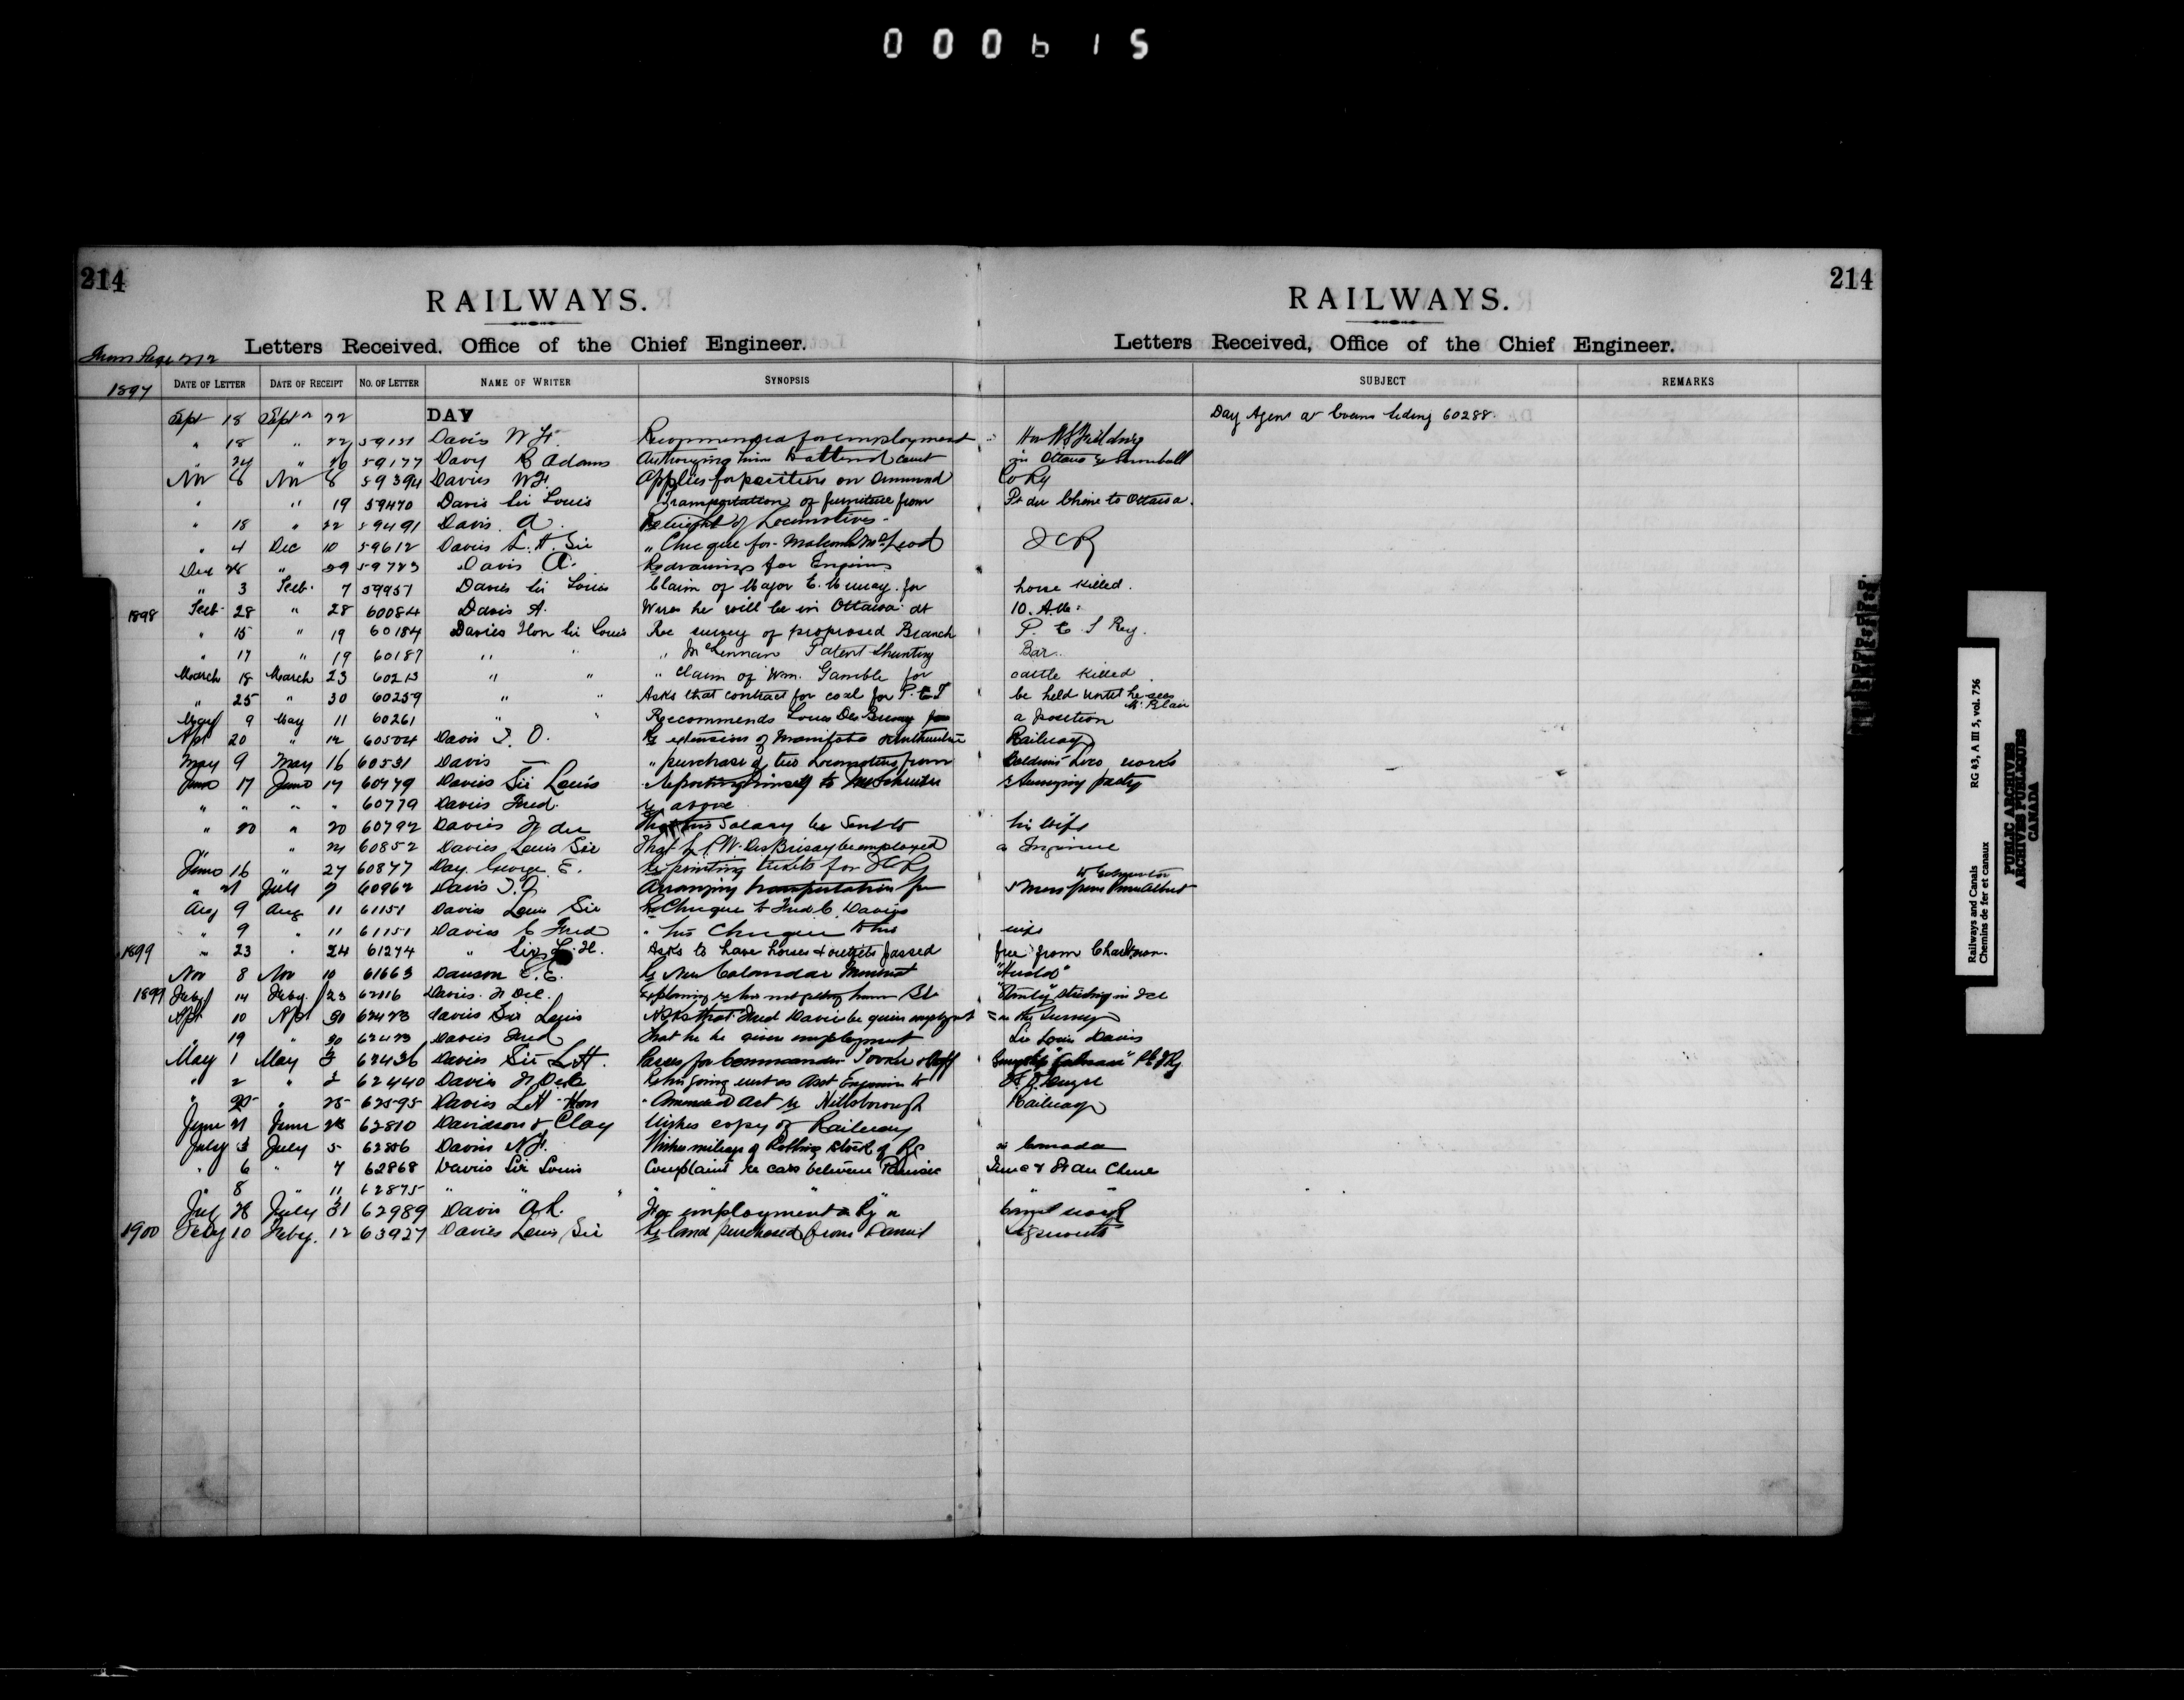 000615
214 RAILWAYS. RAILWAYS. 214
Letters Received, Office of the Chief Engineer. Letters Received, Office of the Chief Engineer.
From Page 212
1897 DATE OF LETTER DATE OF RECEIPT NO. OF LETTER NAME OF WRITER SYNOPSIS SUBJECT REMARKS
Sept 18 Sept 22 DAY Day Agent at Evans Siding 60288
" 18 " 22 59131 Davis W H. Recommended for employment Hon W S Fielding
" 24 " 26 59177 Davy R Adams Authorizing him to attend court in Ottawa re Snowball
Nov 6 Nov 8 59394 Davies W H. Applies for position on Drummond Co Ry
" " 19 59470 Davis Sir Louis Transportation of furniture from Pt du Chine to Ottawa.
" 18 " 22 59491 Davis A. Re weight of Locomotives
" 4 Dec 10 59612 Davies L. H. Sir " Cheque for Malcomb McLeod ICR
Dec 28 " 29 59723 Davis A. Re drawings for Engines
" 3 Feb 7 59957 Davies Sir Louis Claim of Major E. Murray for horse killed.
1898 Feb 28 " 28 60084 Davis A. Wires he will be in Ottawa at 10. A.M.
" 15 " 19 60184 Davies Hon Sir Louis Re survey of proposed Branch P. E I Ry.
" 17 " 19 60187 " " " McLennan Patent Shunting Bar.
March 18 March 23 60213 " " " Claim of Wm. Gamble for cattle killed.
" 25 " 30 60259 " " Asks that contract for coal for P. E I be held until he sees Mr. Blair
May 9 May 11 60261 " " Reccommends Louis Des Brisay for a position
Apl 20 " 12 60504 Davis T. O. Re extension of Manitoba & Northwestern Railway
May 9 May 16 60531 Davis " purchase of two Locomotives from Baldwin Loco works
June 17 June 17 60779 Davies Sir Louis Reporting himself to Mr Schreiber & Surveying party
" " " " 60779 Davies Fred. re above
" 20 " 20 60792 Davies F de That his salary be sent to his wife
" " 21 60852 Davies Louis Sir That L. C W. Des Brisay be employed a Engineer
June 16 " 27 60877 Day. George E. Re printing tickets for ICRy
" 21 July 2 60962 Davis T. O Arranging transportation for W Schreiber & Mess from Prince Albert
Aug 9 Aug 11 61151 Davies Louis Sir Re Cheque to Fred C. Davies
" 9 " 11 61151 Davies C Fred " his Cheque to his wife
1899 " 23 " 24 61274 " Sir L. H. Asks to have horses & outfits passed free from
Nov 8 Nov 10 61663 Dawson E. E. Re New Calendar "Herald"
1899 Feby 14 Feby. 23 62116 Davies. F Del. Explaining re his not getting home "Stanley" sticking in Ice
Apl 10 Apl 20 62423 Davies Sir Louis Asks that Fred Davies be given employment on the Survey
" 19 " 20 62423 Davies Fred That he be given employment Sir Louis Davies
May 1 May 3 62436 Davies Sir L H. Passes for Commander Tooker & staff Gunship P E I Ry
" 2 " 3 62440 Davies F De Re his going west as Asst Engineer to
" 25 " 25 62595 Davies L H Hon " Amended Act re Hillsborough Railway
June 21 June 23 62810 Davidson & Clay Wishes copy of Railway
July 3 July 5 62856 Davis N F. Wishes mileage of Rolling stock of Rs in Canada
" 6 " 7 62868 Davies Sir Louis Complaint re cars between Painsec Junc & Pt du Chene
" 8 " 11 62875 " " " " " "
Jul 28 July 31 62989 Davis A R. For employment by a
1900 Feby 10 Feby. 12 63927 Davies Louis Sir Re land purchased from Daniel
Railways and Canals RG 43, A III 5, vol. 756
Chemins de fer et canaux
PUBLIC ARCHIVES
ARCHIVES PUBLIQUES
CANADA